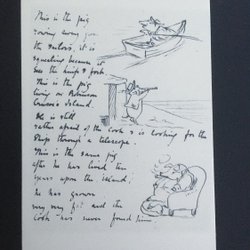 This is the pig
rowing away from
the sailors, it is
squeaking because it
sees the knife & fork.
This is the pig
living on Robinson
Crusoe's Island.
He is still
rather afraid of the Cook & is looking for the
ship through a telescope.
This is the same pig
after he has lived ten
years upon the island.
he has grown
very very fat and the
Cook has never found him